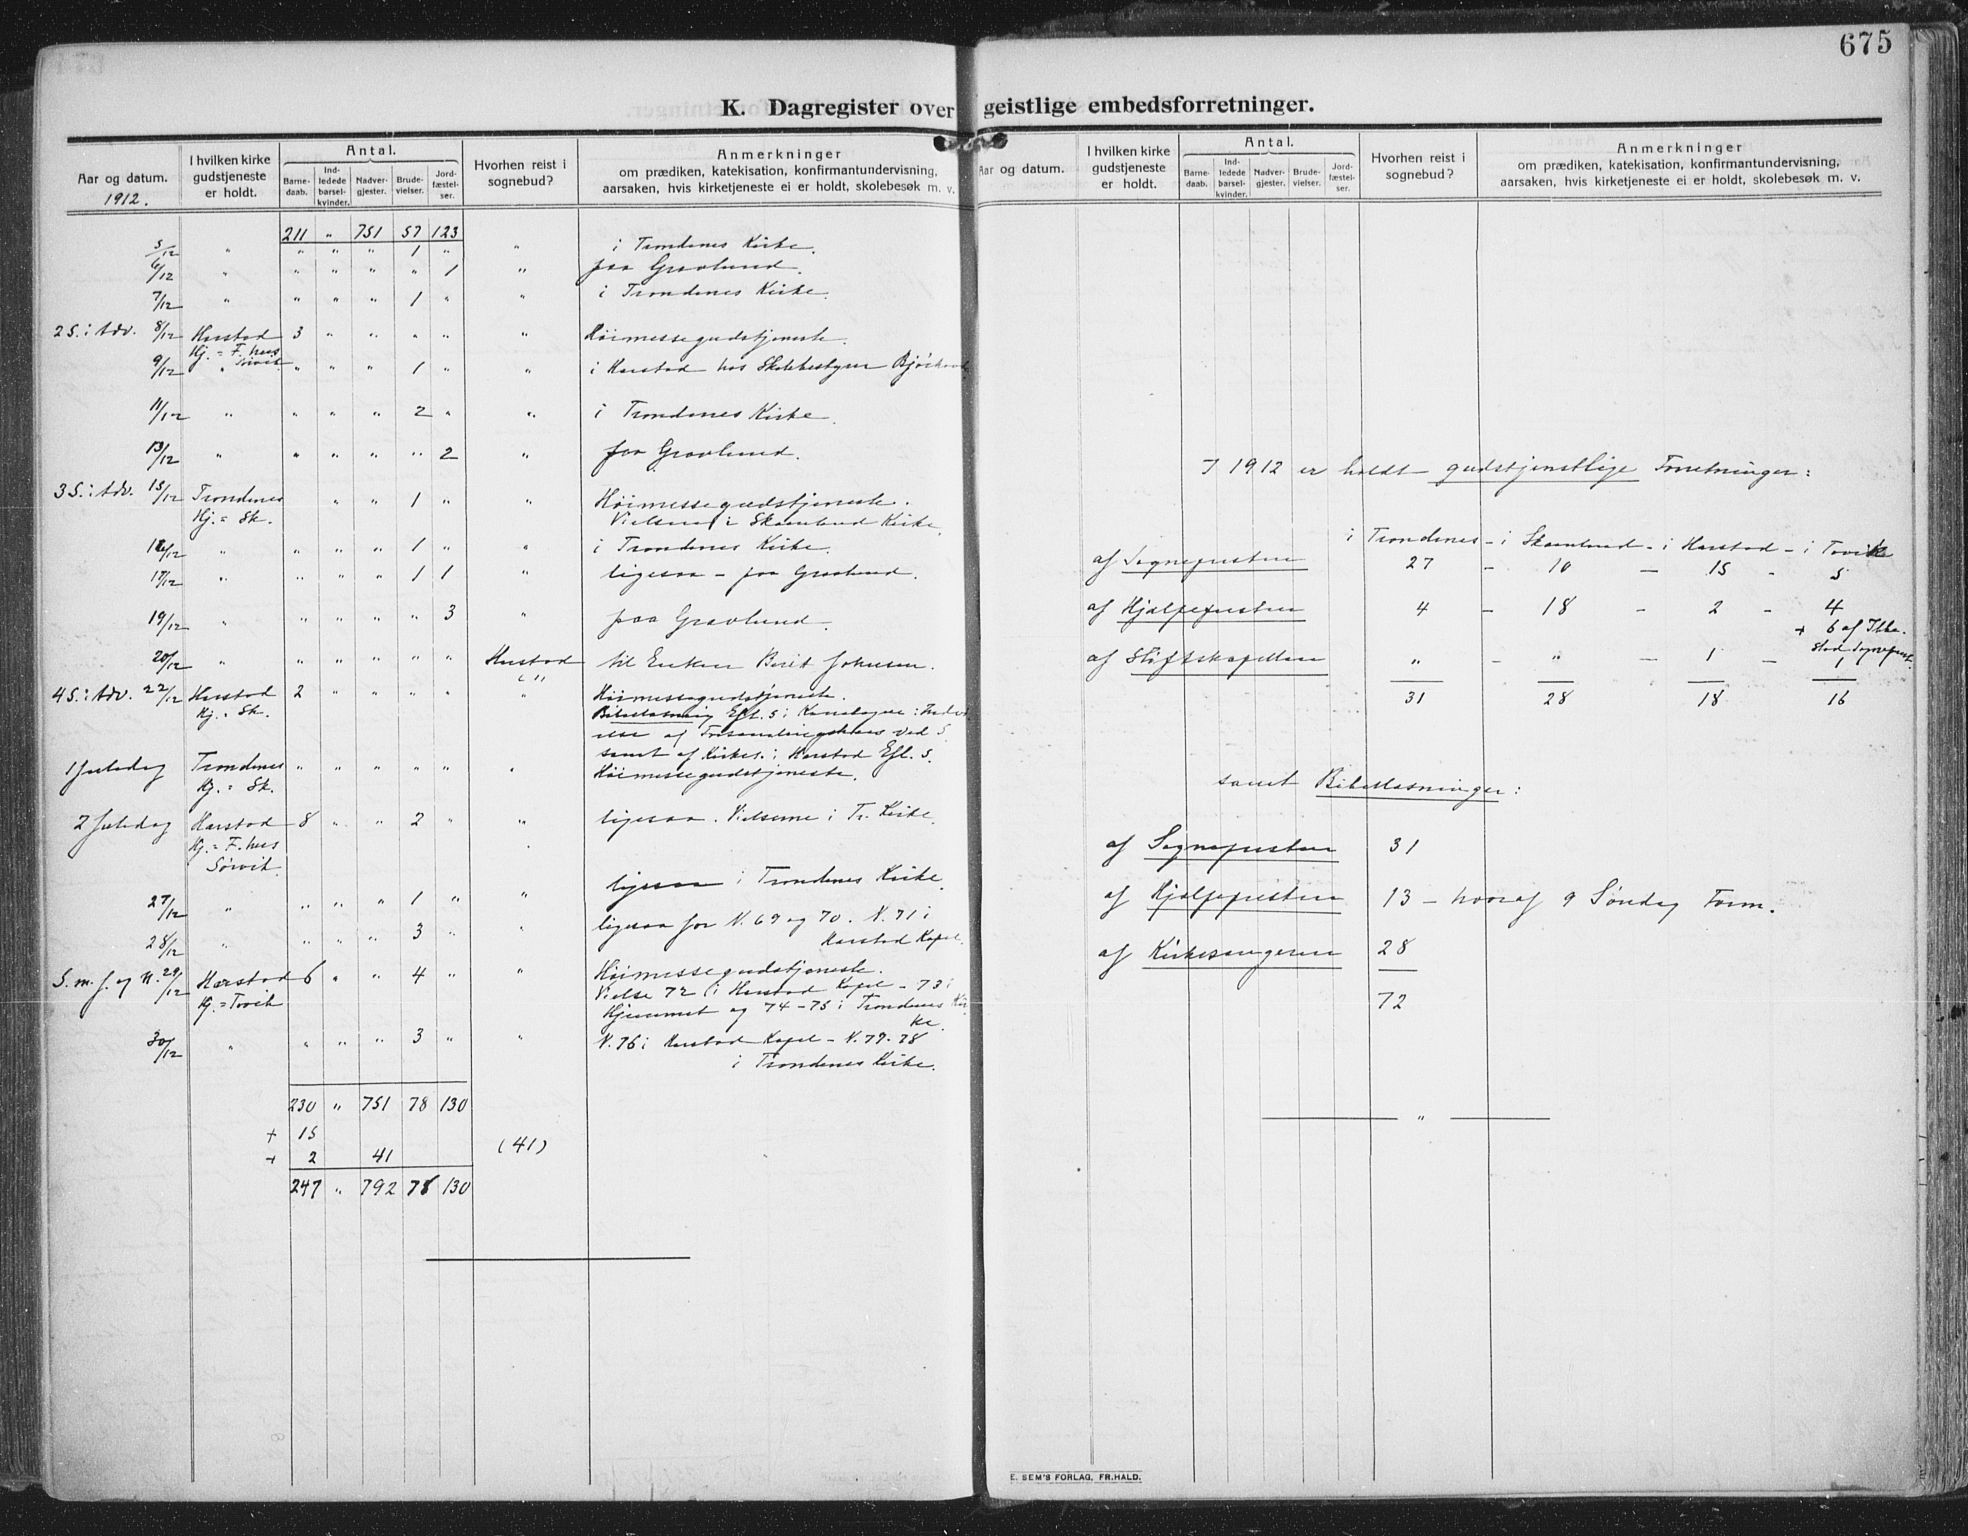 675
K. Dagregister over geistlige embedsforretninger.
Aar og datum.
1912.
I hvilken kirke gudstjeneste er holdt.
Antal.
Barne-daab.
Ind-ledede barsel-kvinder.
Nadver-gjester.
Brude-vielser.
Jord-fæstel-ser.
Hvorhen reist i sognebud?
Anmerkninger
om prædiken, katekisation, konfirmantundervisning,
aarsaken, hvis kirketjeneste ei er holdt, skolebesøk m. v.
211 " 751 57 123
5/12 " " " " 1 " " i Trondenes Kirke.
6/12 " " " " " 1 " paa Gravlund.
7/12 " " " " 1 " " i Trondenes Kirke.
2 S. i Adv. 8/12 Harstad 3 " " " " " Høimessegudstjeneste.
Hj. = F. hus
Sørvik
9/12 " " " " 1 " " i Harstad hos Skolebestyrer
11/12 " " " " 2 " " i Trondenes Kirke.
13/12 " " " " " 2 " paa Gravlund.
3 S. i Adv. 15/12 Trondenes " " 1 " " Høimessegudstjeneste.
Hj. = Sk. Vielsen i Skaanland Kirke.
16/12 " " " " 1 " " i Trondenes Kirke.
17/12 " " " " 1 1 " ligesaa - paa Gravlund.
19/12 " " " " " 3 " paa Gravlund.
20/12 " " " " " " Harstad til Enken Berit Johnsen.
(1)
4 S. i Adv. 22/12 Harstad 2 " " " " " Høimessegudstjeneste.
Hj. = Sk. Bibellæsning Efl. 5 i
af ved S.
samt af Kirkes. i Harstad Efl. 5.
1 Juledag Trondenes " " " " " " Høimessegudstjeneste.
Hj. = Sk.
2 Juledag Harstad 8 " " 2 " " ligesaa. Vielserne i Tr. Kirke.
Hj. = F. hus
Sørvik.
27/12 " " " " 1 " " ligesaa i Trondenes Kirke.
28/12 " " " " 3 " " ligesaa for N. 69 og 70. N. 71 i
Harstad Kapel.
S. m. J. og N. 29/12 Harstad 6 " " 4 " " Høimessegudstjeneste.
Hj. = Tovik Vielse 72 i Harstad Kapel - 73 i
Hjemmet og 74-75 i Trondenes Kir-
ke.
30/12 " " " " 3 " " N. 76 i Harstad Kapel - N. 77-78
i Trondenes Kirke.
230 " 751 78 130
+ 15
+ 2 41 (41)
247 " 792 78 130
Aar og datum.
I hvilken kirke gudstjeneste er holdt.
Antal.
Barne-daab.
Ind-ledede barsel-kvinder.
Nadver-gjester.
Brude-vielser.
Jord-fæstel-ser.
Hvorhen reist i sognebud?
Anmerkninger
om prædiken, katekisation, konfirmantundervisning,
aarsaken, hvis kirketjeneste ei er holdt, skolebesøk m. v.
I 1912 er holdt gudstjenstlige Forretninger:
i Trondenes - i Skaanland - i Harstad - i Tovik
af Sognepresten 27 - 10 - 15 - 5
af Hjælpepresten 4 - 18 - 2 - 4
+ 6 af Ibe-
stad Sogneprest.
af Stiftskapellan " - " - 1 - 1
31 28 18 16
samt Bibellæsninger:
af Sognepresten 31
af Hjælpepresten 13 - hvoraf 9 Søndag Form.
af Kirkesangeren 28
72
"
E. SEM'S FORLAG, FR.HALD.